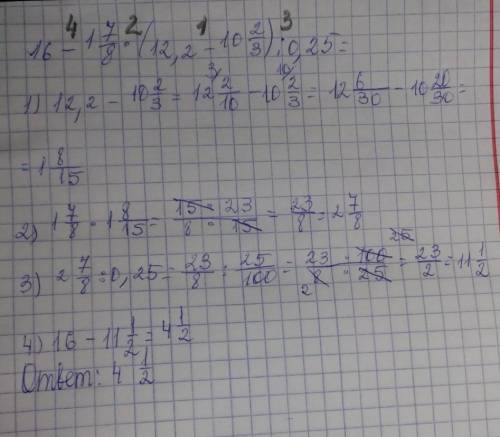 4 2 1 3
16 - 1 7/8 · (12,2 - 10 2/3) : 0,25 =
1) 12,2 - 10 2/3 = 12 2/10 - 10 2/3 = 12 6/30 - 10 20/30 =
= 1 8/15
2) 1 7/8 · 1 8/15 = 15 · 23 / 8 · 15 = 23/8 = 2 7/8
3) 2 7/8 : 0,25 = 23/8 : 25/100 = 23/8 · 100/25 = 23/2 = 11 1/2
4) 16 - 11 1/2 = 4 1/2
Ответ: 4 1/2